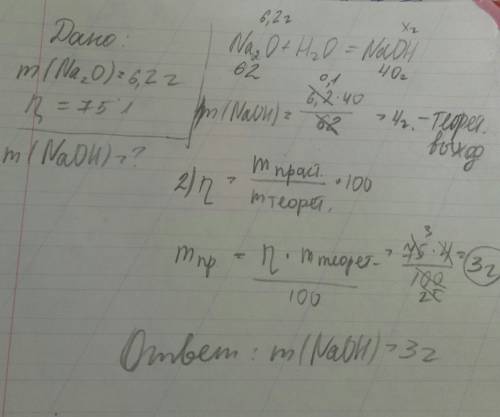 Дано:
m(Na₂O)=6,2 г
η = 75%
m(NaOH)=?
6,2 г xг
Na₂O + H₂O = NaOH
62 40г
m(NaOH) = 6,2·40 / 62 = 4г. – теорет. выход
0,1
2) η = m практ. / m теорет. · 100
m пр = η · m теорет. / 100 = 75·4 / 100 = 3г
3
25
Ответ: m(NaOH)=3г